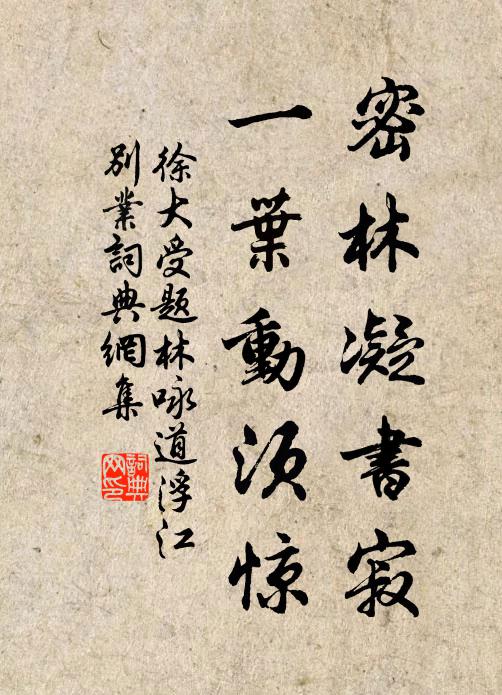 密林凝書寂
一葉動須惊
徐大受題林咏道浮江
別業詞典網集
詞典
网印